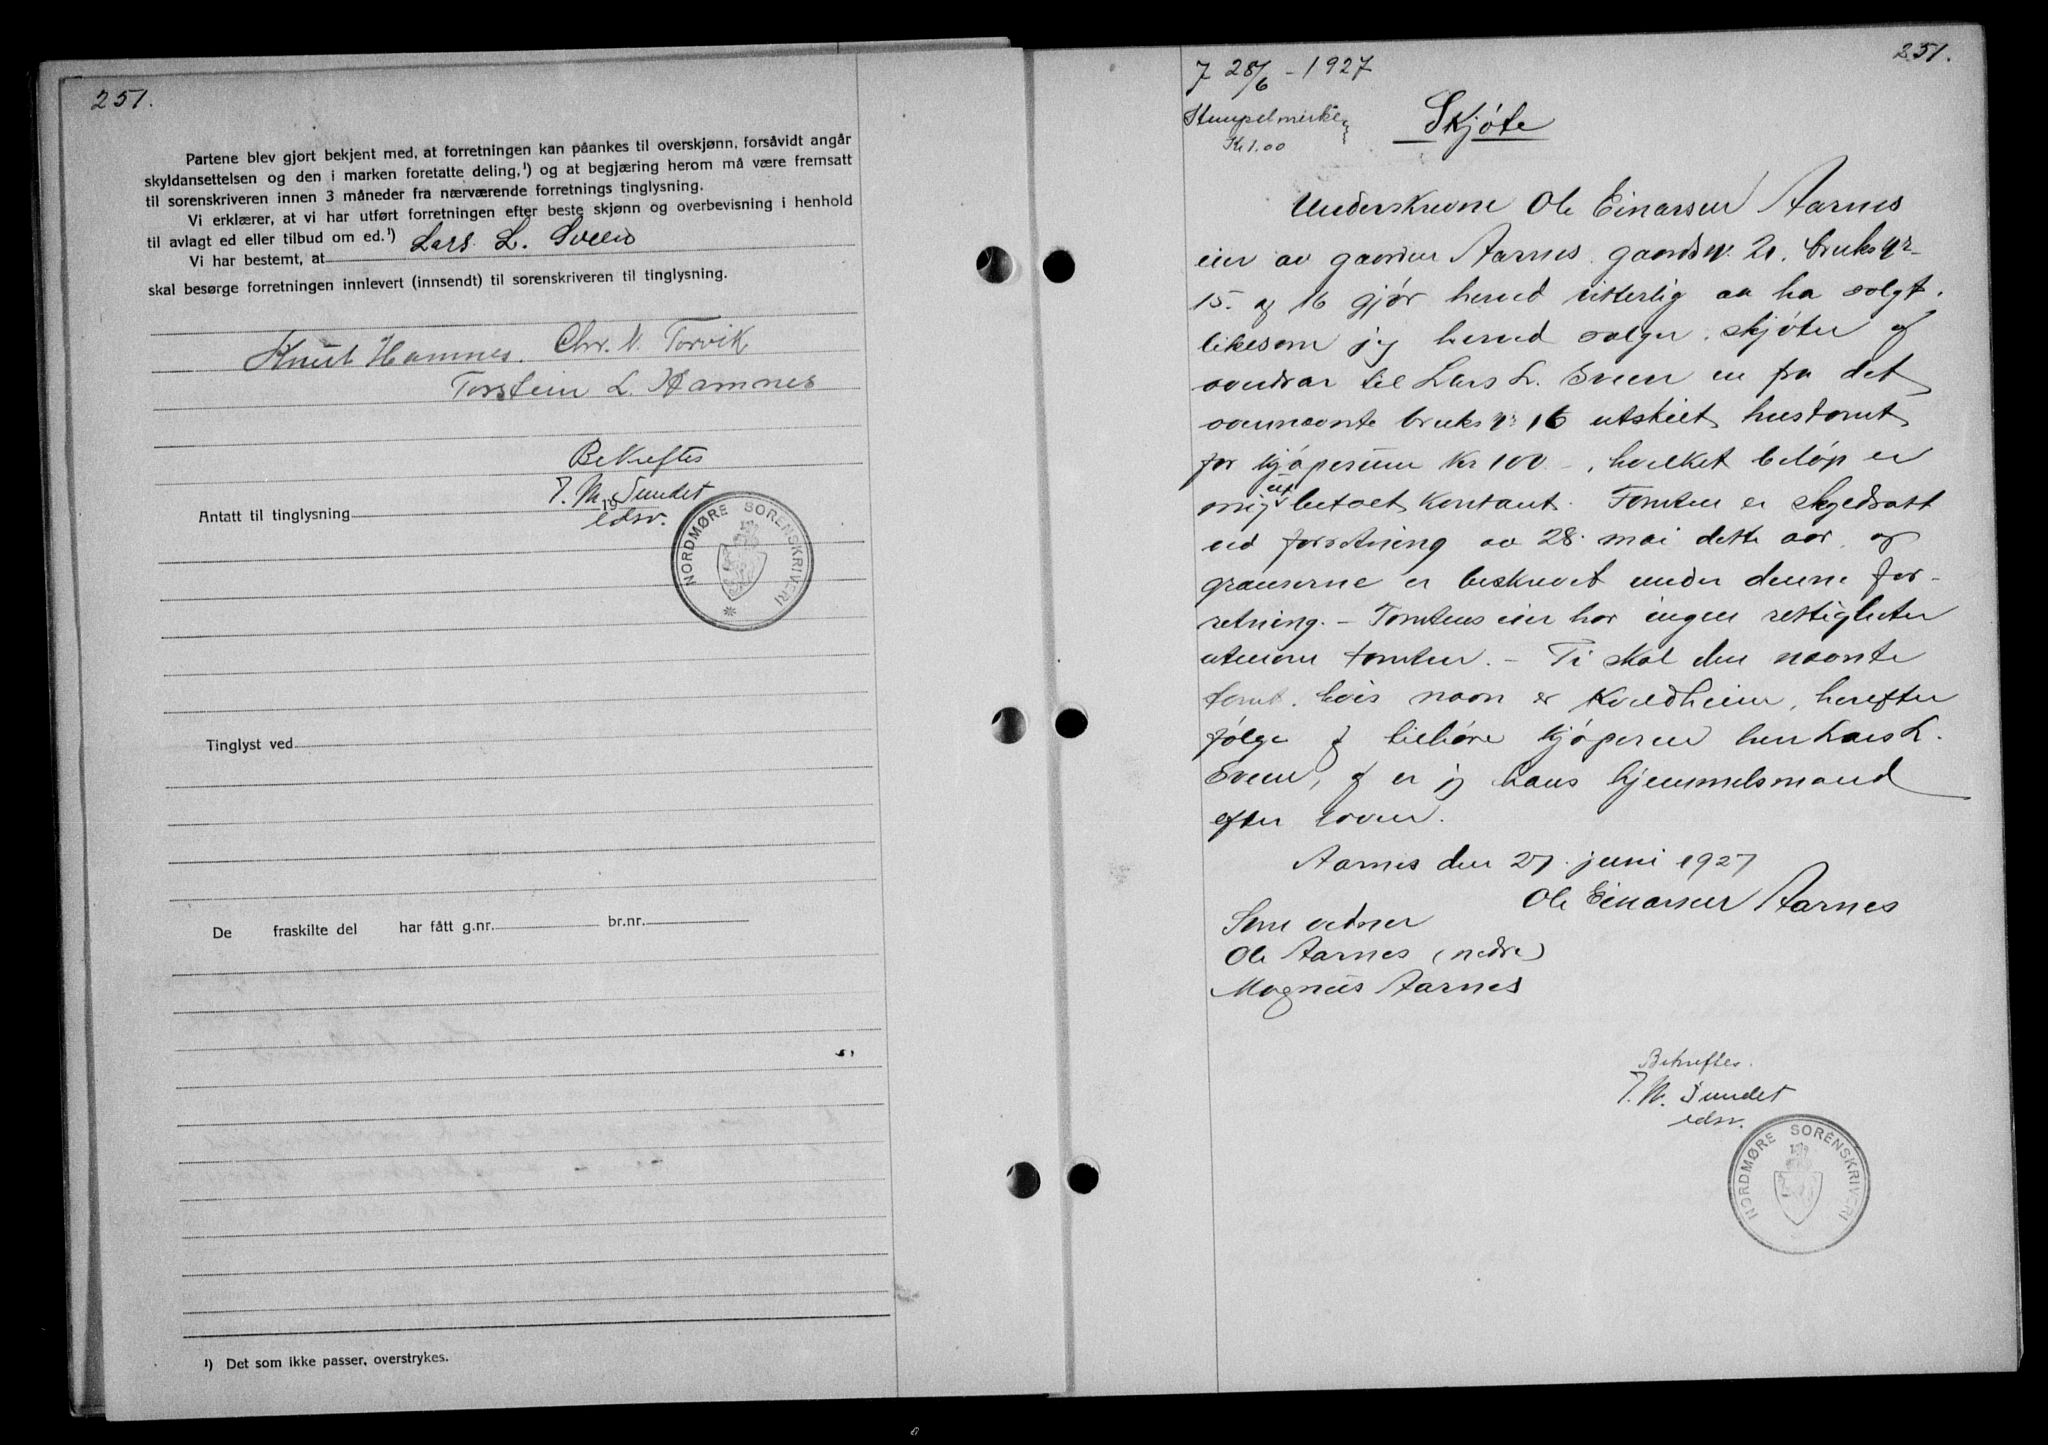 251.
Partene blev gjort bekjent med, at forretningen kan påankes til overskjønn, forsåvidt angår
skyldansettelsen og den i marken foretatte deling,¹) og at begjæring herom må være fremsatt
til sorenskriveren innen 3 måneder fra nærværende forretnings tinglysning.
Vi erklærer, at vi har utført forretningen efter beste skjønn og overbevisning i henhold
til avlagt ed eller tilbud om ed.¹)
Vi har bestemt, at Lars L. Sveen
skal besørge forretningen innlevert (innsendt) til sorenskriveren til tinglysning.
Knut Hamnes. Chr. N. Torvik
Torstein L. Hamnes
Bekreftes
T. M. Sundet
edsv.
Antatt til tinglysning 19
NORDMØRE SORENSKRIVERI
Tinglyst ved
De fraskilte del har fått g.nr. br.nr.
¹) Det som ikke passer, overstrykes.
251.
7 28/6 - 1927
Stempelmerke
Kr 1.00
Skjøte
Underskrevne Ole Einarsen Aarnes
eier av gaarden Aarnes gaardsnr. 21. bruks nr
15. og 16 gjør herved vitterlig aa ha solgt.
likesom jeg herved selger, skjøter og
overdrar til Lars L. Sveen en fra det
ovennevnte bruks nr 16 utskilt hustomt
for kjøpesum Kr 100 -, hvilket beløp er
mig utbetalt kontant. Tomten er skyldsatt
ved forretning av 28. mai dette aar, og
grænserne er beskrevet under denne for-
retning. - Tomtens eier har ingen rettigheter
utenom tomten. - Ti skal den nævnte
tomt. hvis navn er Kveldheim, herefter
følge og tilhøre kjøperen herr Lars L.
Sveen, og er jeg hans hjemmelsmand
efter loven.
Aarnes den 27. juni 1927
Ole Einarsen Aarnes
Som vidner
Ole Aarnes (nedre)
Magnus Aarnes
Bekreftes.
T. M. Sundet
edsv.
NORDMØRE SORENSKRIVERI